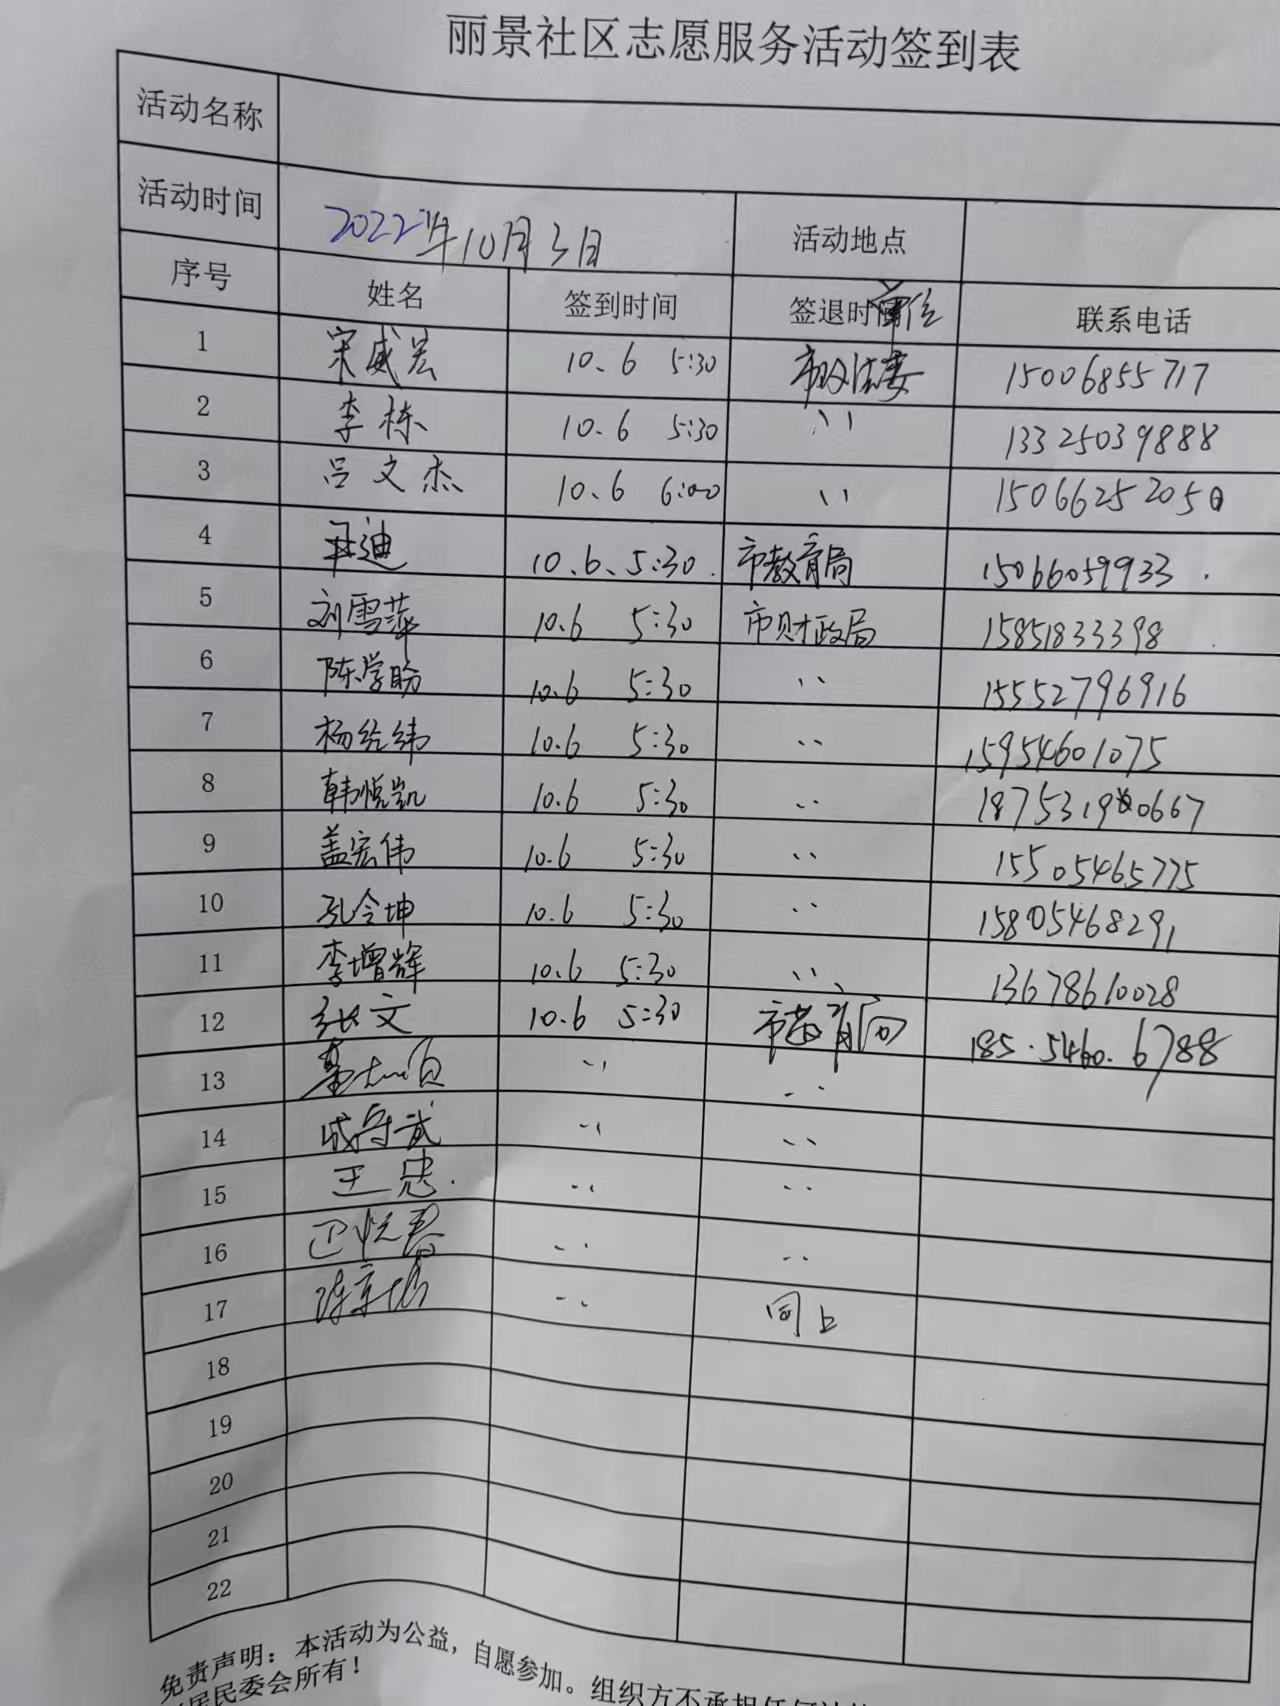 丽景社区志愿服务活动签到表
活动名称
活动时间 2022年10月3日 活动地点
序号 姓名 签到时间 签退时间单位 联系电话
1 宋威宏 10.6 5:30 市政法委 15006855717
2 李栋 10.6 5:30 〃 13325039888
3 吕文杰 10.6 6:00 〃 15066252050
4 王迪 10.6. 5:30. 市教育局 15066059933.
5 刘雪萍 10.6 5:30 市财政局 15851833398
6 陈学盼 10.6 5:30 〃 15552796916
7 杨经纬 10.6 5:30 〃 15954601075
8 韩悦凯 10.6 5:30 〃 18753190667
9 盖宏伟 10.6 5:30 〃 15505465775
10 孔令坤 10.6 5:30 〃 15805468291
11 李增辉 10.6 5:30 〃 13678610028
12 张文 10.6 5:30 市教育局 185.5460.6788
13 〃 〃
14 成守武 〃 〃
15 王忠. 〃 〃
16 〃 〃
17 〃 同上
18
19
20
21
22
免责声明：本活动为公益，自愿参加。组织方不承担任何
居民委会所有！